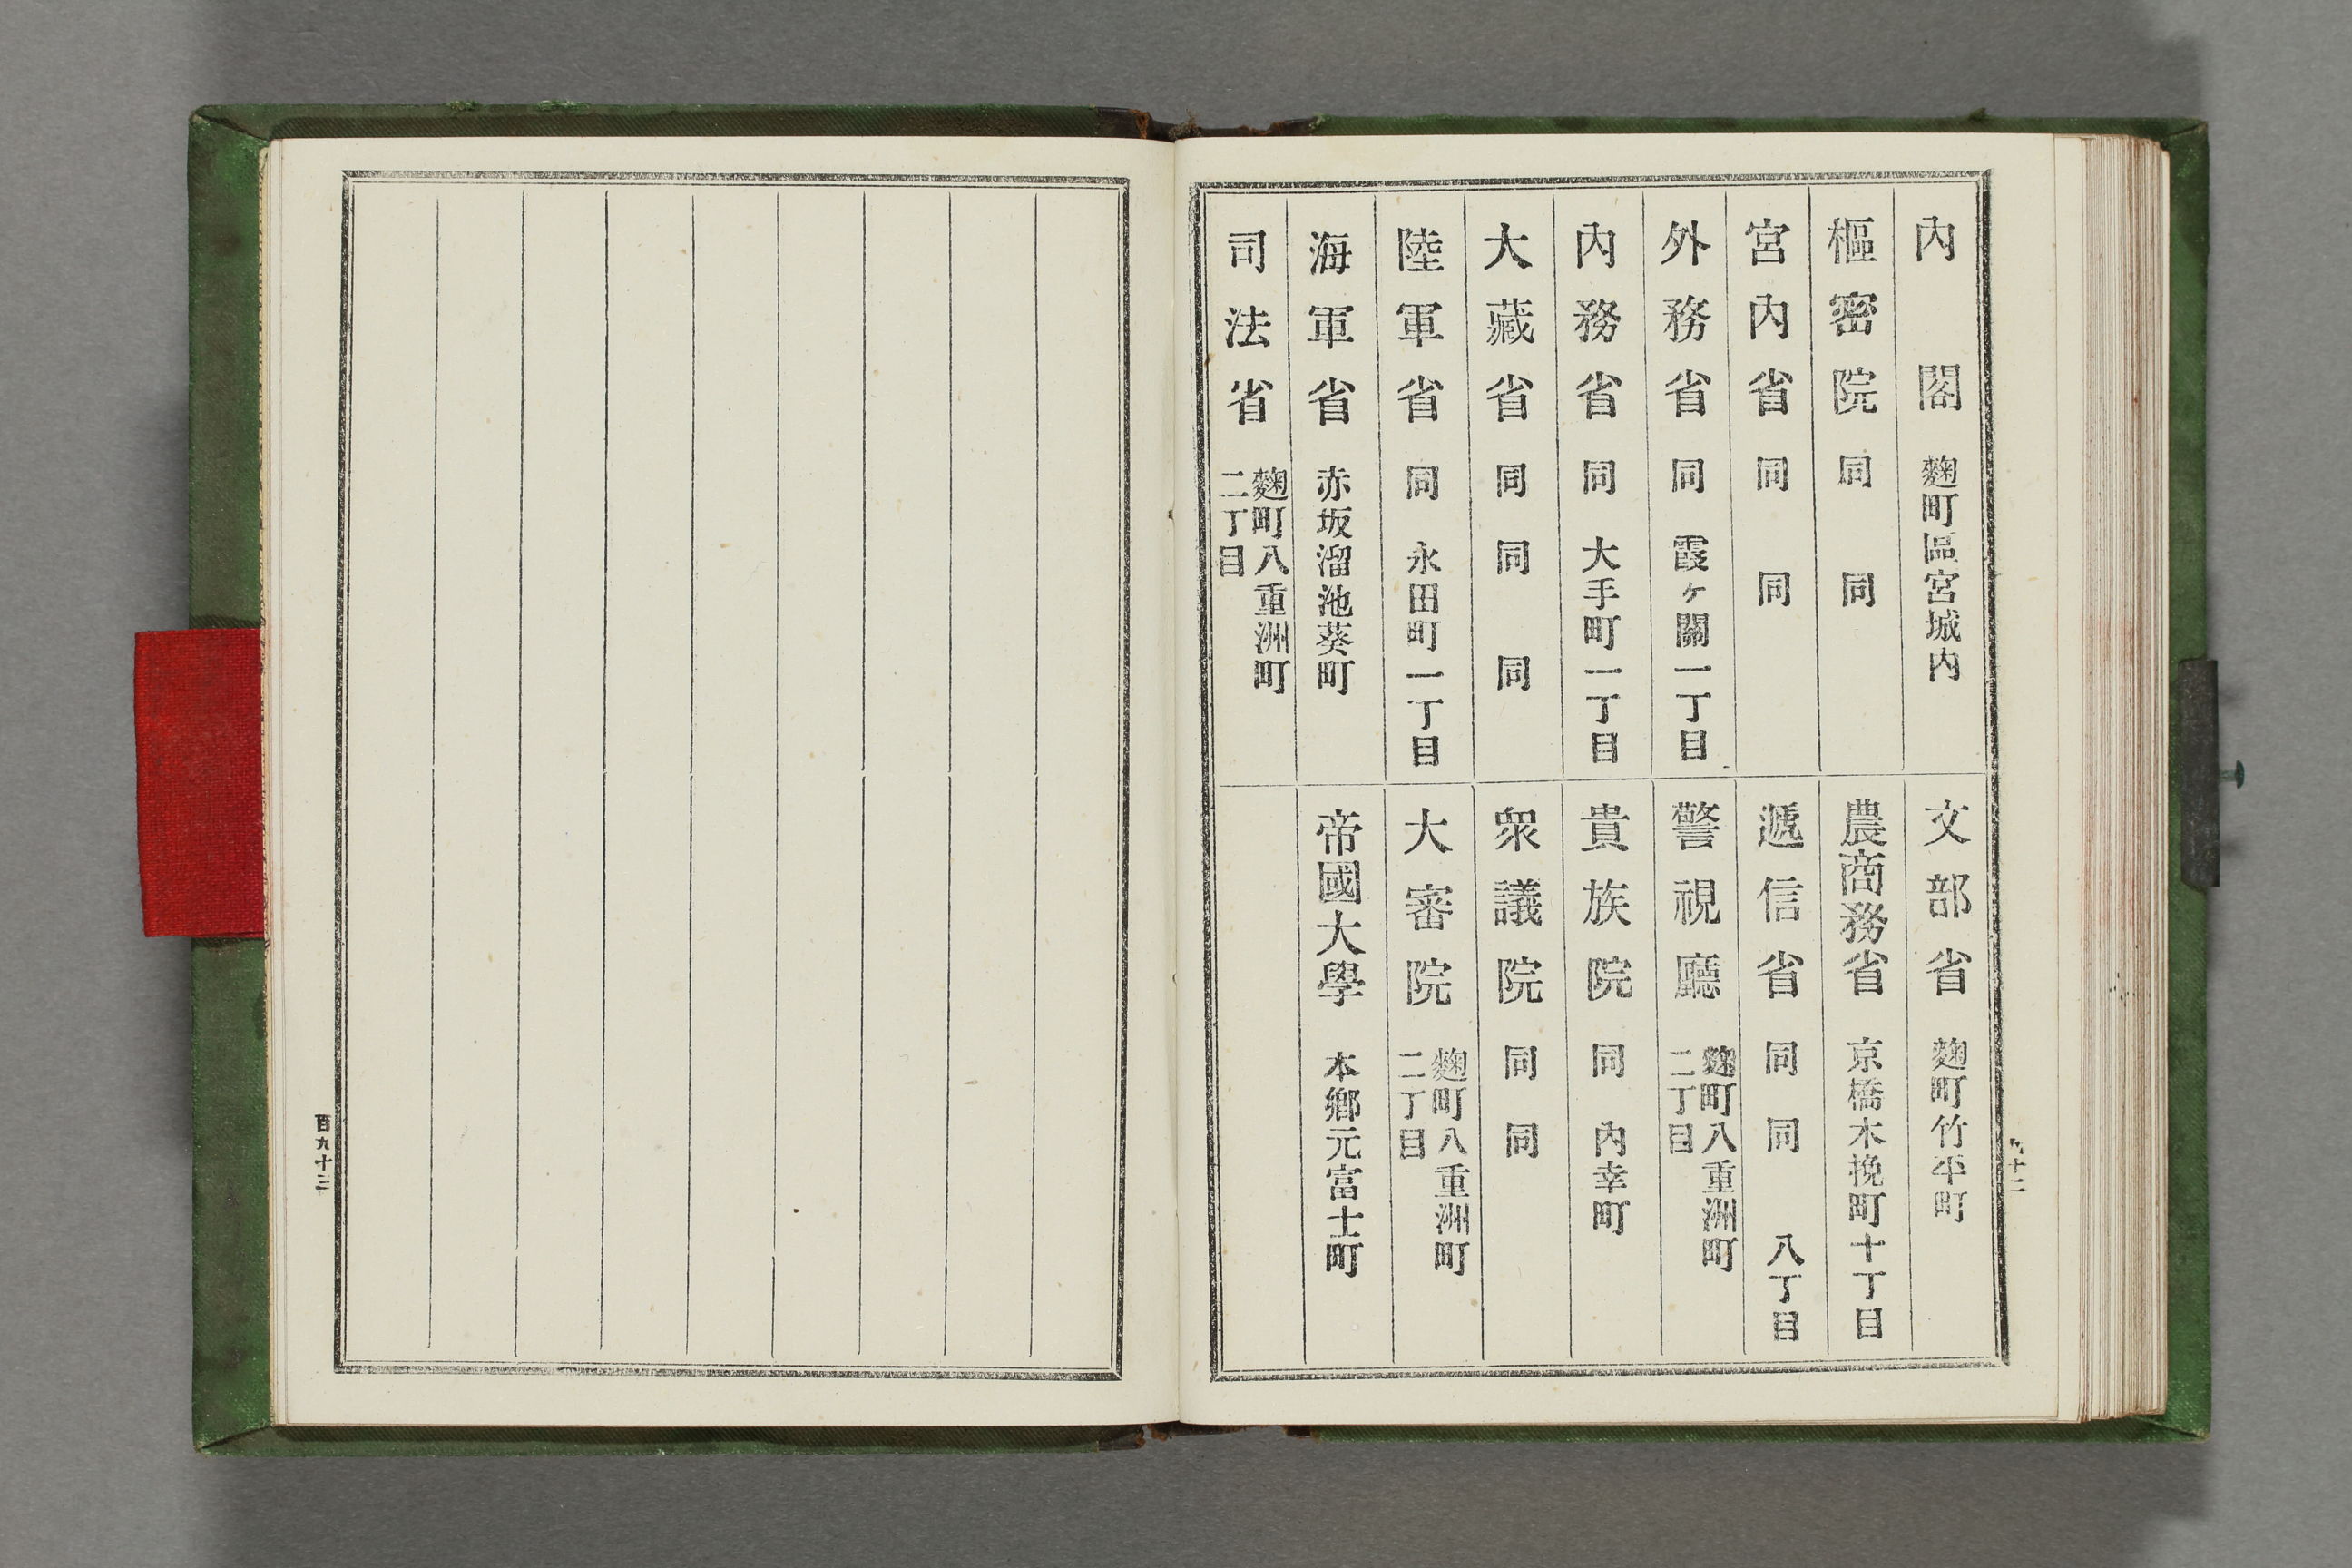 內閣 麴町區宮城內
樞密院 同同
宮內省 同同
外務省 同霞ヶ關一丁目
內務省 同大手町一丁目
大藏省 同同同
陸軍省 同永田町一丁目
海軍省 赤坂溜池葵町
司法省 麴町八重洲町
二丁目
文部省 麴町竹平町
農商務省 京橋木挽町十丁目
遞信省 同同八丁目
警視廳 麴町八重洲町
二丁目
貴族院 同內幸町
衆議院 同同
大審院 麴町八重洲町
二丁目
帝國大學 本鄉元富士町
百九十三